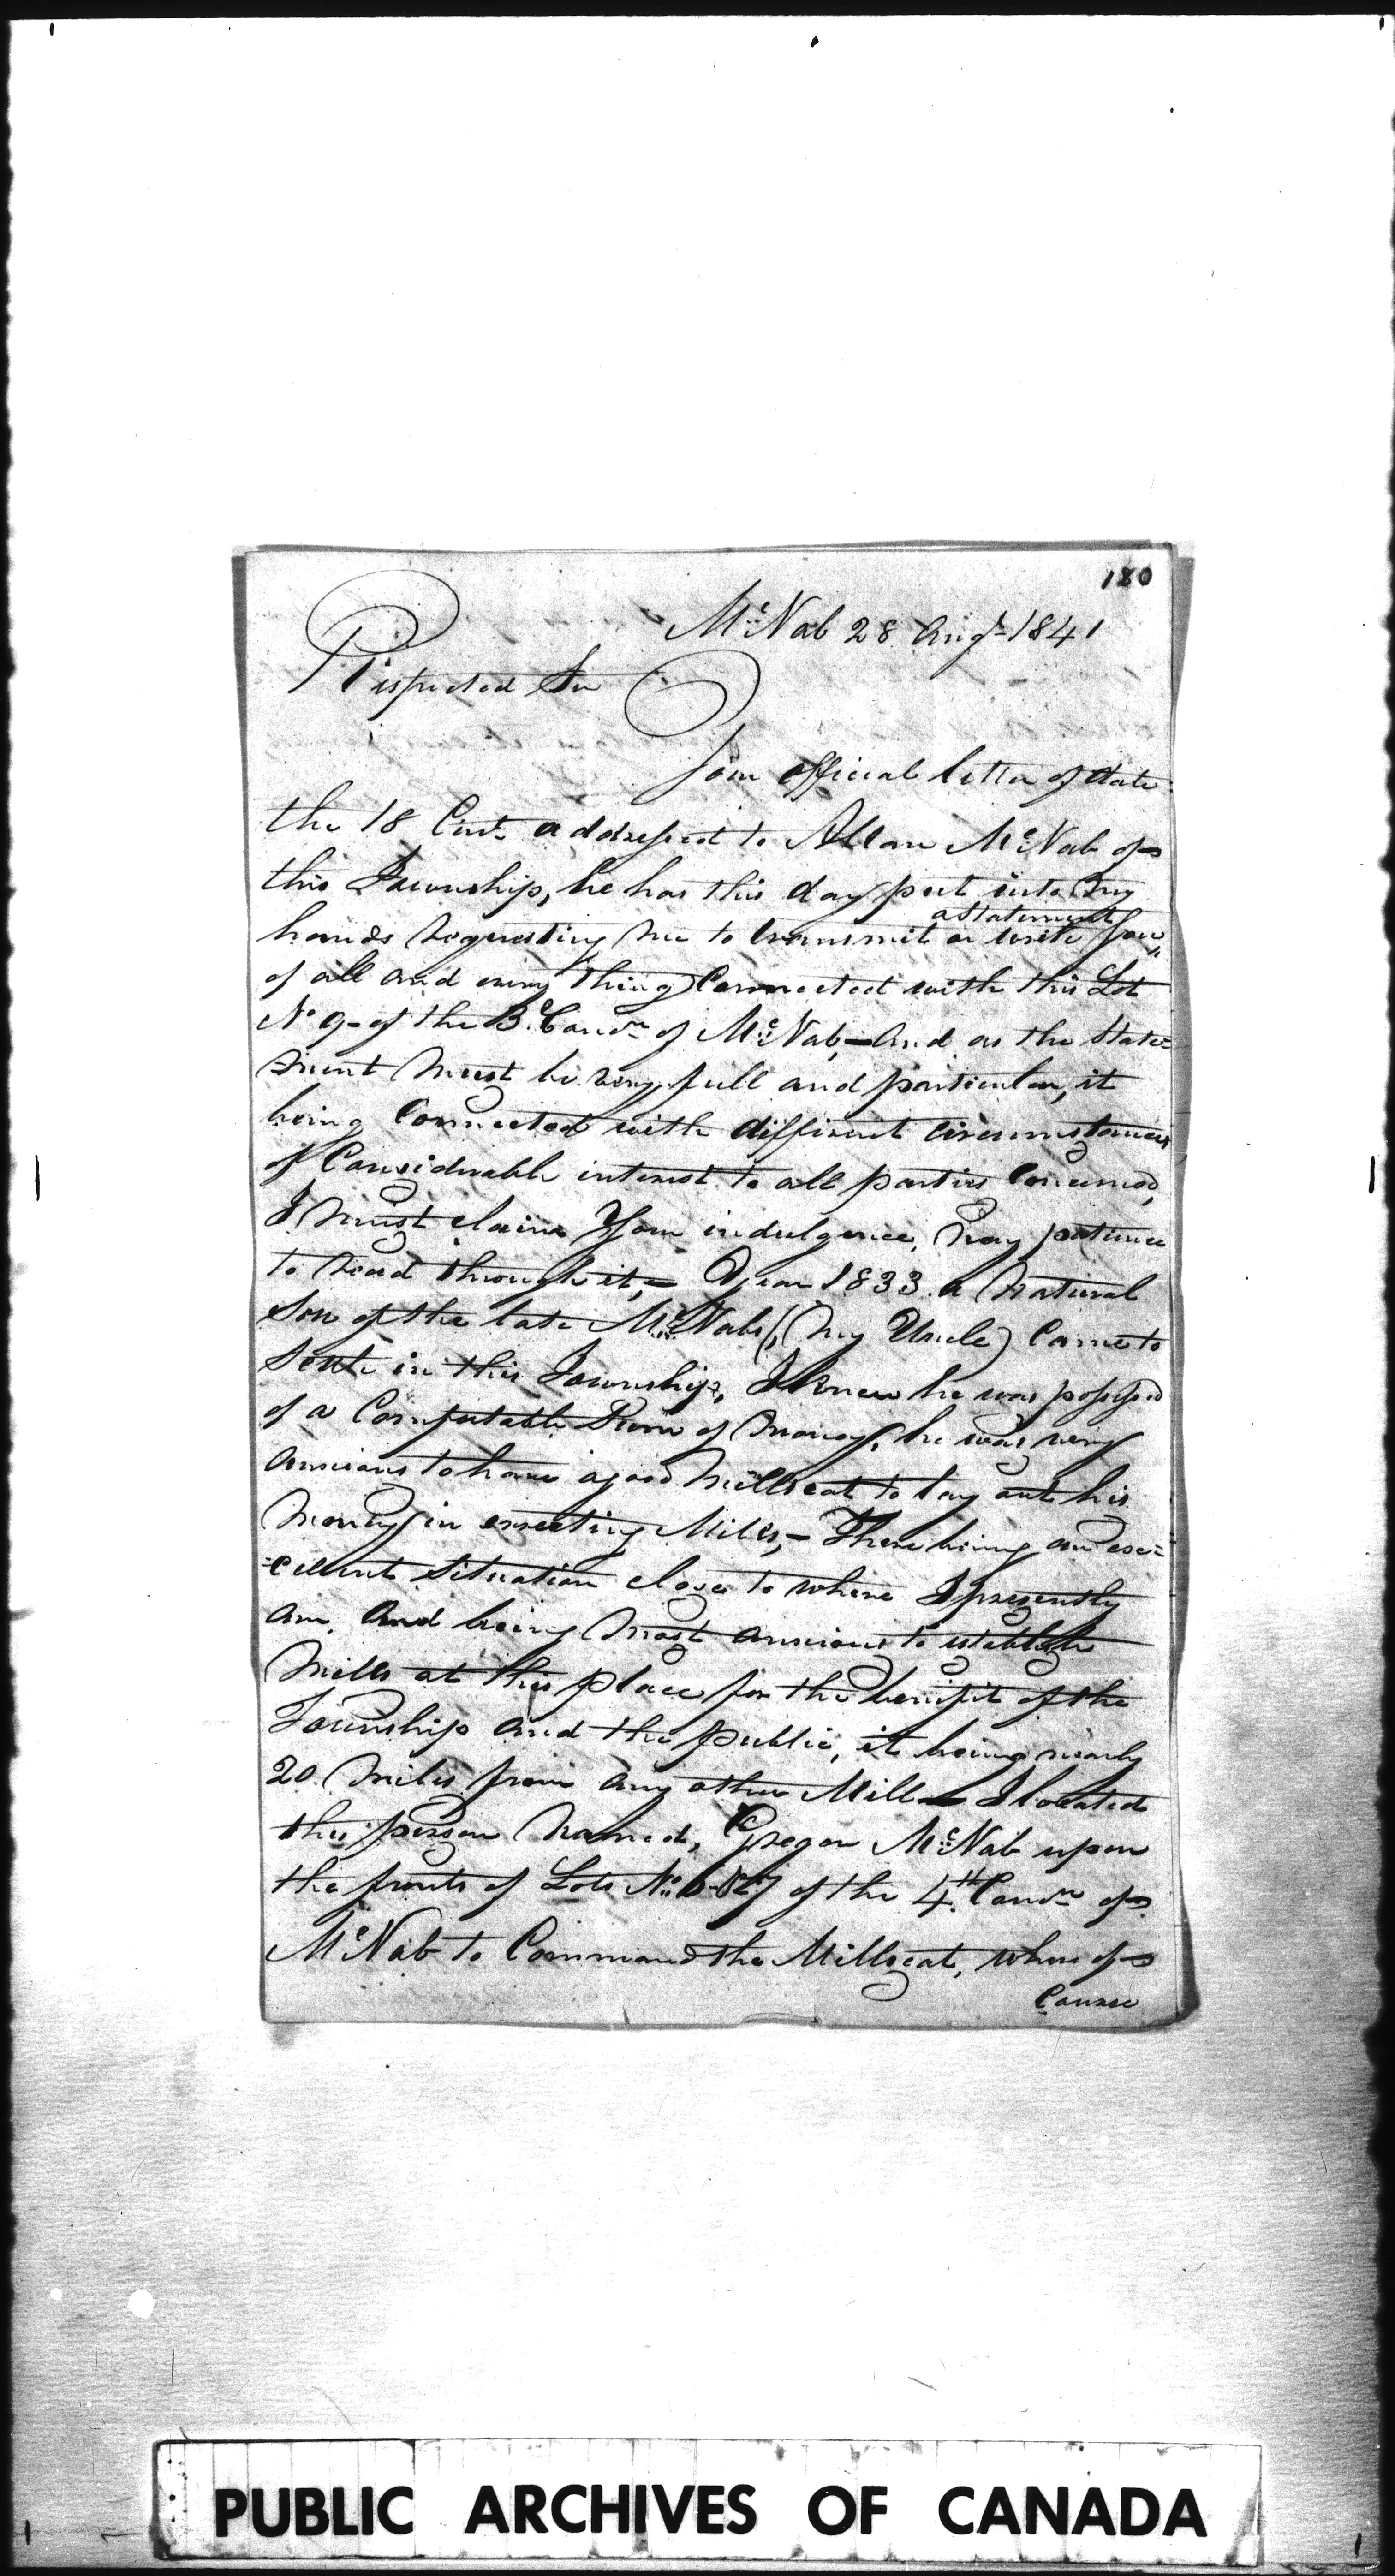 180
McNab 28 Augt 1841
Respected Sir
Your official letter of date
the 18 Curt addressed to Allan McNab of
this Township, he has this day put into my
hands requesting me to transmit or write you
a Statement
of all and every thing Connected with this Lot
No 9 of the Bc Conn of McNab,- And as the State=
ment must be very full and particular, it
being Connected with different circumstances
of Considerable interest to all parties Concerned,
I must claim Your indulgence, nay patience
to read through it,- Year 1833 a Natural
Son of the late McNabs (My Uncle) Came to
Settle in this Township, I knew he was possessed
of a Comfortable Sum of Money, he was very
anxious to have a good Millseat to lay out his
Money in errecting Mills,- There being an exc=
=cellent Situation close to where I presently
am, And being most anxious to establish
Mills at this place for the benifit of the
Township and the public, it being nearly
20 Miles from any other Mill- I located
this person Named, Gregor McNab upon
the fronts of Lots No 6 & 7 of the 4th Conn of
McNab to Command the Millseat, whom of
Course
PUBLIC ARCHIVES OF CANADA